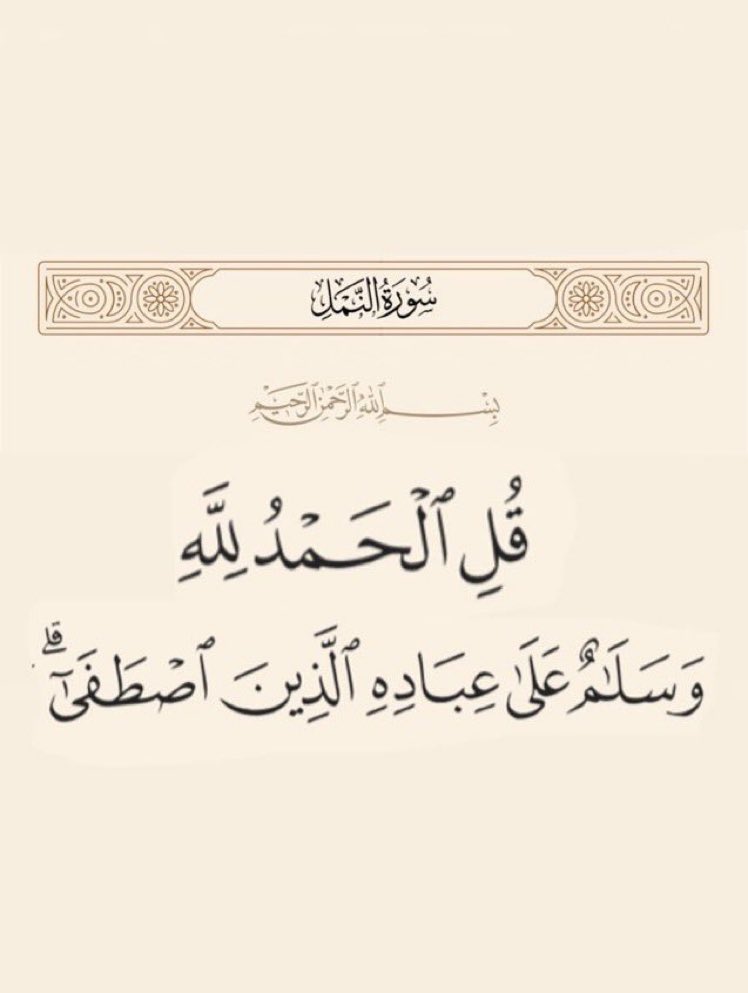 سُورَةُ النَّمۡلِ
بِسۡمِ ٱللَّهِ ٱلرَّحۡمَٰنِ ٱلرَّحِيمِ
قُلِ ٱلۡحَمۡدُ لِلَّهِ
وَسَلَٰمٌ عَلَىٰ عِبَادِهِ ٱلَّذِينَ ٱصۡطَفَىٰٓۗ